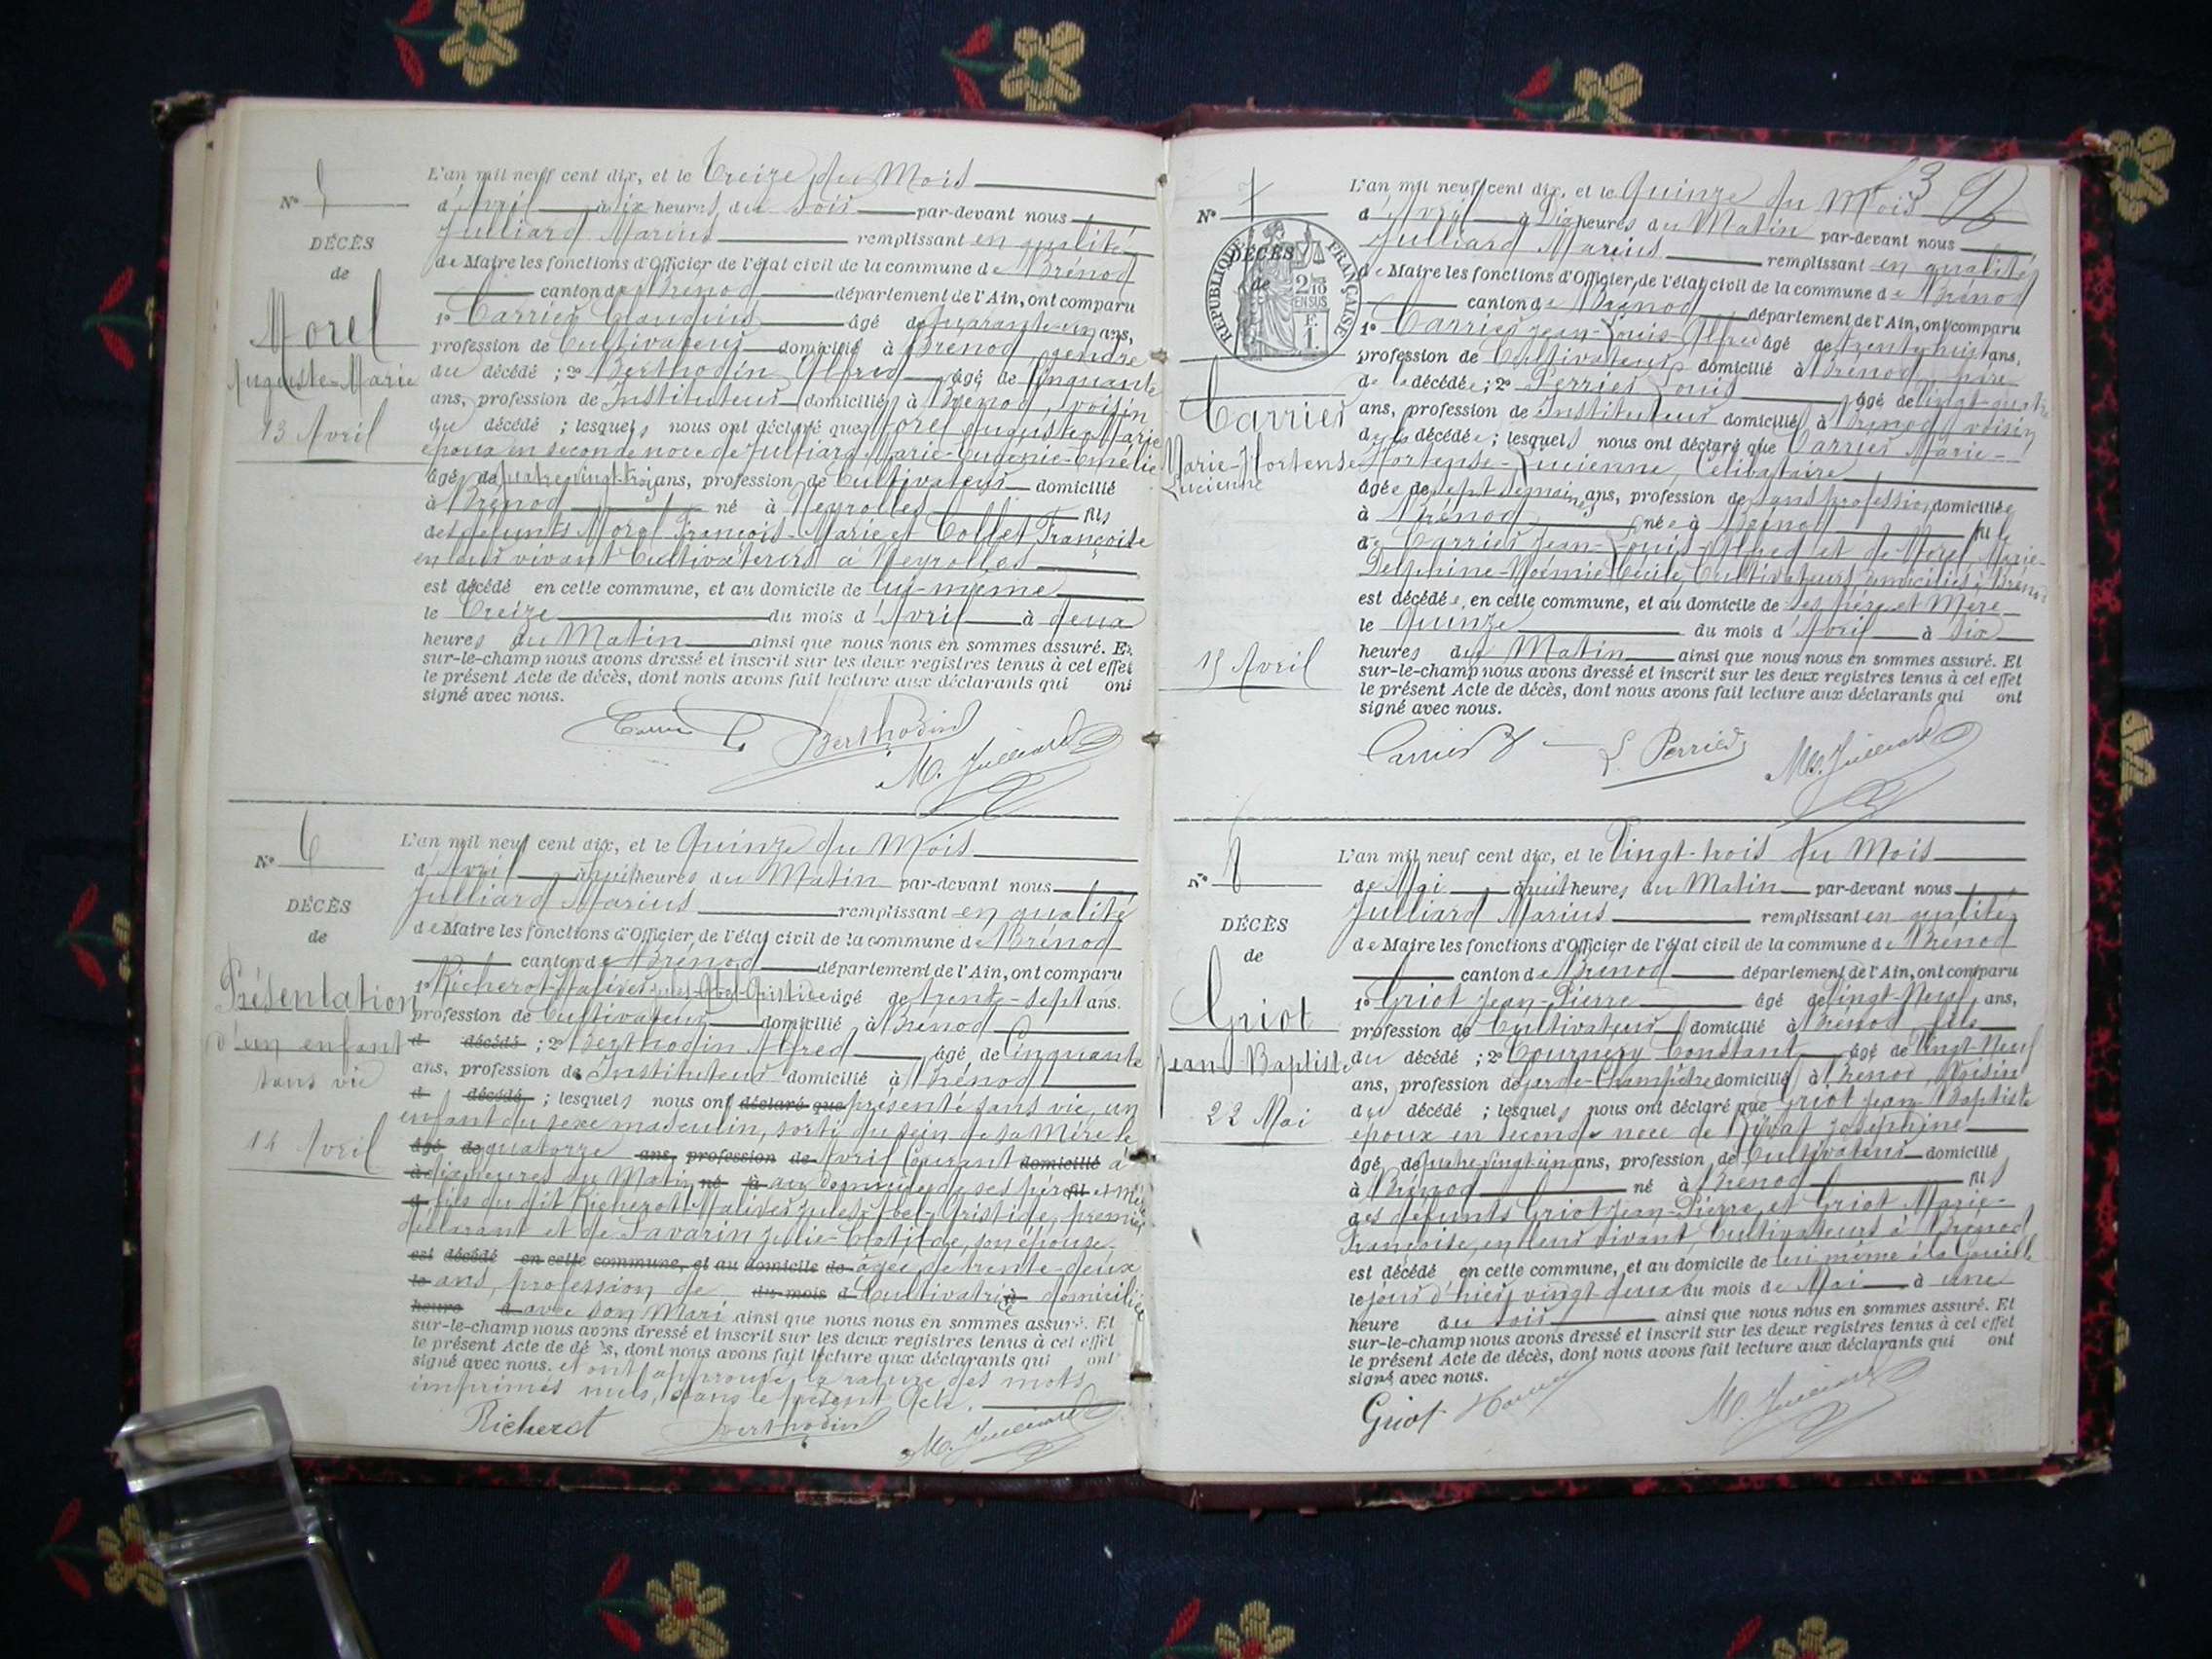 N° 5
DÉCÈS
de
Morel
Auguste-Marie
13 Avril
L'an mil neuf cent dix, et le Treize du Mois
d'Avril à six heures du soir par-devant nous
Julliard Marius remplissant en qualité
de Maire les fonctions d'Officier de l'état civil de la commune de Brénod
canton de Brénod département de l'Ain, ont comparu
1° Carrier Claudius âgé de quarante-un ans,
profession de Cultivateur domicilié à Brénod, gendre
du décédé ; 2° Berthodin Alfred âgé de Cinquante
ans, profession de Instituteur domicilié à Brénod, voisin
du décédé ; lesquels nous ont déclaré que Morel Auguste-Marie
époux en seconde noce de Julliard Marie-Eugénie-Emélie
âgé de quatre vingt-trois ans, profession de Cultivateur domicilié
à Brénod né à Neyrolles fils
des défunts Morel François-Marie et Collet Françoise
en leur vivant Cultivateurs à Neyrolles
est décédé en cette commune, et au domicile de lui-même
le Treize du mois d'Avril à deux
heures du Matin ainsi que nous nous en sommes assuré. Et
sur-le-champ nous avons dressé et inscrit sur les deux registres tenus à cet effet
le présent Acte de décès, dont nous avons fait lecture aux déclarants qui ont
signé avec nous.
Berthodin
M. Julliard
N° 6
DÉCÈS
de
Présentation
d'un enfant
sans vie
14 Avril
L'an mil neuf cent dix, et le Quinze du Mois
d'Avril à huit heures du Matin par-devant nous
Julliard Marius remplissant en qualité
de Maire les fonctions d'Officier de l'état civil de la commune de Brénod
canton de Brénod département de l'Ain, ont comparu
1° Richerot Aristide âgé de trente-sept ans.
profession de Cultivateur domicilié à Brénod
d décédé ; 2° Berthodin Alfred âgé de Cinquante
ans, profession de Instituteur domicilié à Brénod
d décédé ; lesquels nous ont déclaré que présenté sans vie, un
enfant du sexe masculin, sorti du sein de sa Mère le
âgé de quatorze ans, profession de Avril Courant domicilié à
à dix heures du Matin né à au domicile de ses père fil et Mère
d fils du dit Richerot Aristide, premier
déclarant et de Savarin Julie-Clotilde, son épouse,
est décédé en cette commune, et au domicile de âgée de trente-deux
le ans, profession de du mois d Cultivatrice à domiciliée
heure d avec son Mari ainsi que nous nous en sommes assuré. Et
sur-le-champ nous avons dressé et inscrit sur les deux registres tenus à cet effet
le présent Acte de dé s, dont nous avons fait lecture aux déclarants qui ont
signé avec nous. et ont approuvé la rature des mots
imprimés nuls, dans le présent Acte.
Richerot
Berthodin
M. Julliard
3
N° 7
RÉPUBLIQUE FRANÇAISE
2/10 EN SUS
F. 1.
DÉCÈS
de
Carrier
Marie-Hortense
Lucienne
15 Avril
L'an mil neuf cent dix, et le Quinze du Mois
d'Avril à Dix heures du Matin par-devant nous
Julliard Marius remplissant en qualité
de Maire les fonctions d'Officier de l'état civil de la commune de Brénod
canton de Brénod département de l'Ain, ont comparu
1° Carrier Jean-Louis-Alfred âgé de trente-huit ans,
profession de Cultivateur domicilié à Brénod, père
de la décédée ; 2° Perrier Louis âgé de vingt-quatre
ans, profession de Instituteur domicilié à Brénod, voisin
de la décédée ; lesquels nous ont déclaré que Carrier Marie-
Hortense-Lucienne, Célibataire
âgée de sept semaines ans, profession de sans profession domiciliée
à Brénod née à Brénod fille
de Carrier Jean-Louis-Alfred et de Morel Marie-
Delphine-Noémie-Cécile, Cultivateurs domiciliés à Brénod
est décédée, en cette commune, et au domicile de ses père et Mère
le Quinze du mois d'Avril à six
heures du Matin ainsi que nous nous en sommes assuré. Et
sur-le-champ nous avons dressé et inscrit sur les deux registres tenus à cet effet
le présent Acte de décès, dont nous avons fait lecture aux déclarants qui ont
signé avec nous.
Carrier
L. Perrier
Ms. Julliard
N° 8
DÉCÈS
de
Griot
Jean-Baptiste
22 Mai
L'an mil neuf cent dix, et le Vingt-trois du Mois
de Mai à huit heures du Matin par-devant nous
Julliard Marius remplissant en qualité
de Maire les fonctions d'Officier de l'état civil de la commune de Brénod
canton de Brénod département de l'Ain, ont comparu
1° Griot Jean-Pierre âgé de Vingt-Neuf ans,
profession de Cultivateur domicilié à Brénod fils
du décédé ; 2° Constant âgé de Vingt-Neuf
ans, profession de garde-Champêtre domicilié à Brénod, Voisin
du décédé ; lesquels nous ont déclaré que Griot Jean-Baptiste
époux en seconde noce de Josephine
âgé de quatre-vingt-un ans, profession de Cultivateur domicilié
à Brénod né à Brénod fils
des défunts Griot Jean-Pierre et Griot Marie-
Françoise, en leur vivant, Cultivateurs à Brénod
est décédé en cette commune, et au domicile de lui même à la
le jour d'hier vingt deux du mois de Mai à une
heure du soir ainsi que nous nous en sommes assuré. Et
sur-le-champ nous avons dressé et inscrit sur les deux registres tenus à cet effet
le présent Acte de décès, dont nous avons fait lecture aux déclarants qui ont
signé avec nous.
Griot
M. Julliard